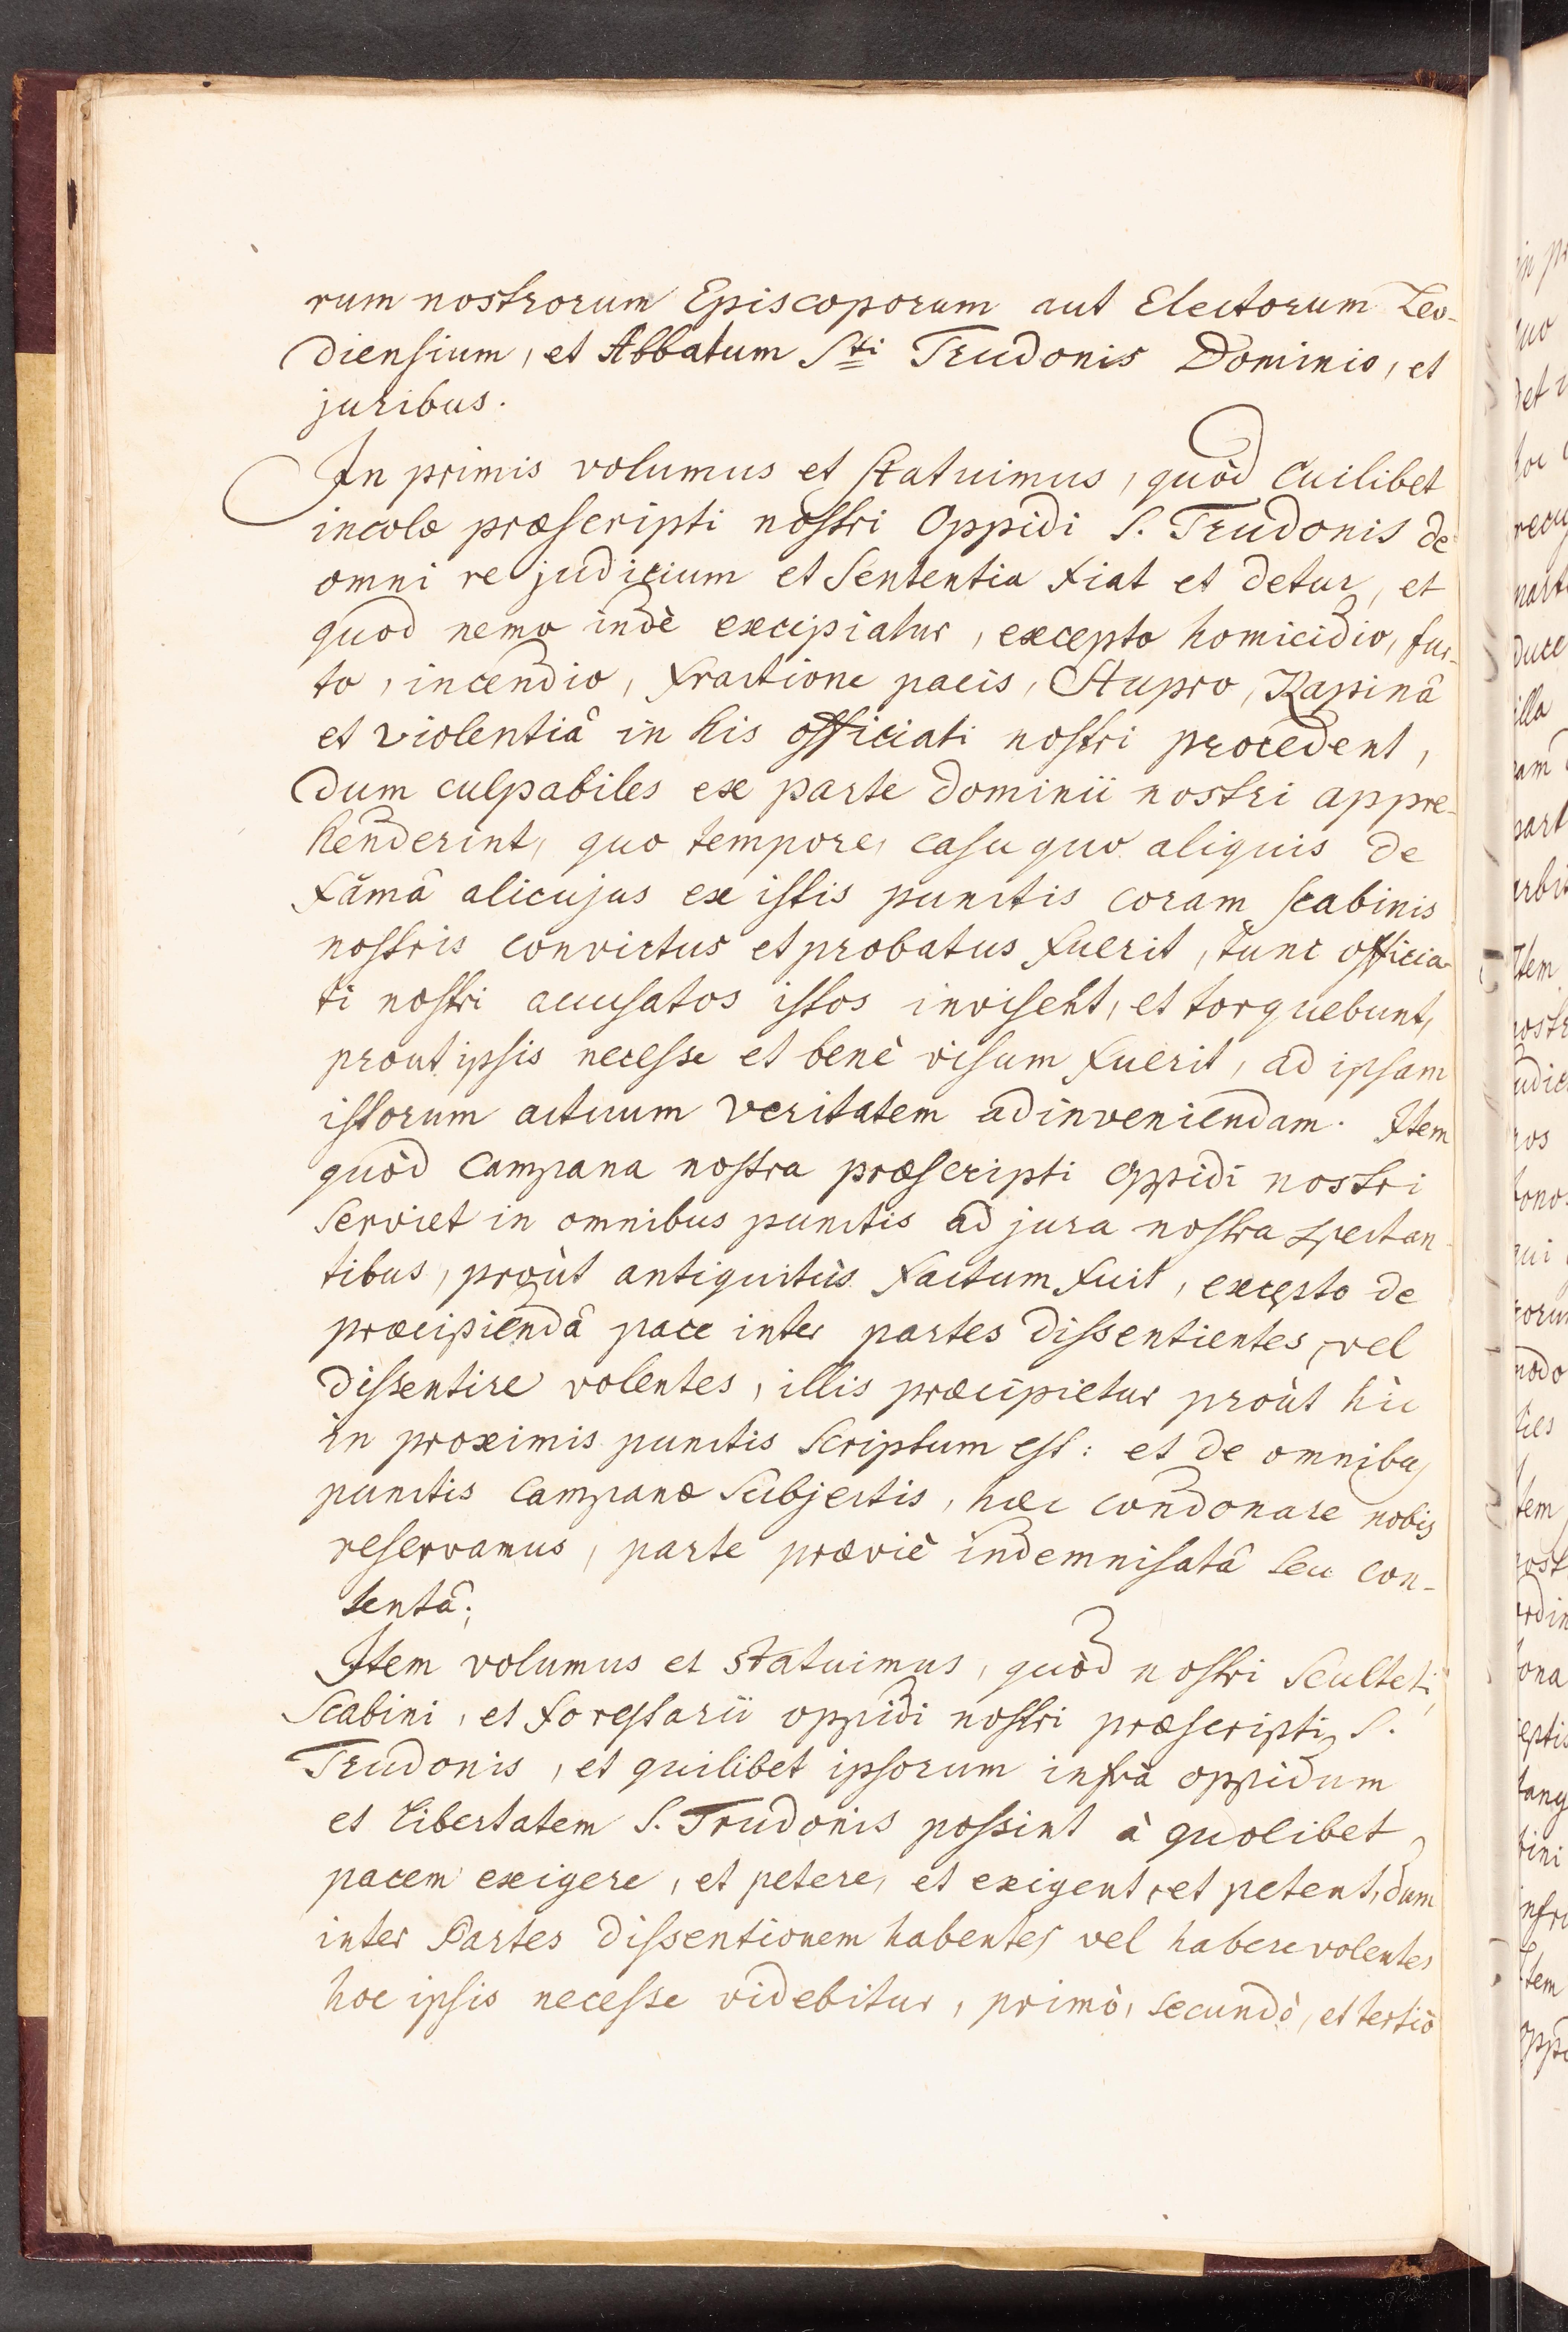 rum nostrorum Episcoporum aut Electorum Leo-
diensium, et Abbatum Sti Trudonis Dominio, et
juribus.
In primis volumus et statuimus, quòd Cuilibet
incolæ præscripti nostri Oppidi S. Trudonis de
omni re judicium et Sententia fiat et detur, et
quod nemo indè excipiatur, excepto homicidio, fur-
to, incendio, fractione pacis, Stupro, Rapinâ
et violentiâ in his officiati nostri procedent,
dum culpabiles ex parte dominii nostri appre-
henderint, quo tempore, casu quo aliquis de
fâmâ alicujus ex istis punctis coram scabinis
nostris convictus et probatus fuerit, tunc officia-
ti nostri accusatos istos invisent, et torquebunt,
prout ipsis necesse et benè visum fuerit, ad ipsam
istorum actuum veritatem adinveniendam. Item
quòd Campana nostra præscripti oppidi nostri
Serviet in omnibus punctis ad jura nostra spectan-
tibus, proùt antiquitùs factum fuit, excepto de
præcipiendâ pace inter partes dissentientes, vel
dissentire volentes, illis præcipietur proùt hìc
in proximis punctis Scriptum est: et de omnibus
punctis Campanæ Subjectis, hæc condonare nobis
reservamus, parte præviè indemnisatâ seu con-
tentâ;
Item volumus et statuimus, quòd nostri Sculteti,
Scabini, et forestarii oppidi nostri præscripti S.
Trudonis, et quilibet ipsorum infrà oppidum
et Libertatem S. Trudonis possint à quolibet
pacem exigere, et petere, et exigent, et petent, dum
inter Partes dissentionem habentes vel habere volentes
hoc ipsis necesse videbitur, primò, secundò, et tertiò